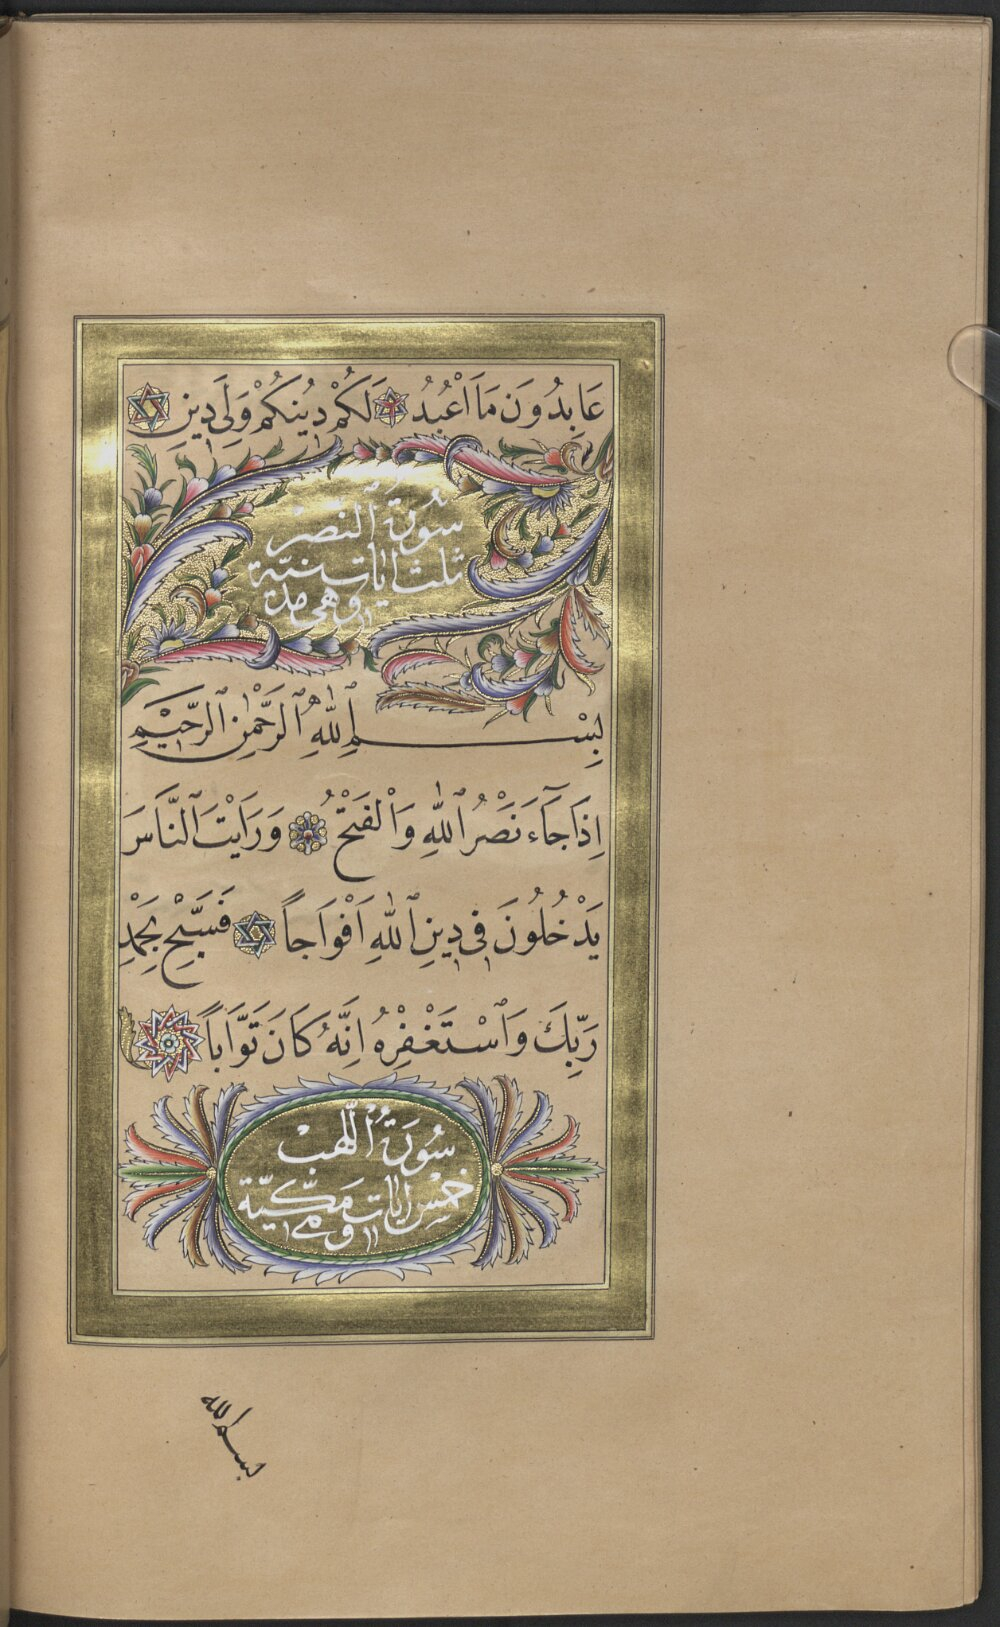 عَابِدُونَ مَا اَعْبُدُ لَكُمْ دِينُكُمْ وَلِيَ دِينِ
سُورَةُ النَّصْرِ
ثلث اٰيات
وهى مدنيّة
بِسْمِ اللّٰهِ الرَّحْمٰنِ الرَّحٖيمِ
اِذَا جَٓاءَ نَصْرُ اللّٰهِ وَالْفَتْحُ وَرَاَيْتَ النَّاسَ
يَدْخُلُونَ فٖى دٖينِ اللّٰهِ اَفْوَاجاً فَسَبِّحْ بِحَمْدِ
رَبِّكَ وَاسْتَغْفِرْهُ اِنَّهُ كَانَ تَوَّاباً
سُورَةُ اللَّهَبْ
خَمْسُ اٰيَات
وهى مَكِّيَّة
بسم الله